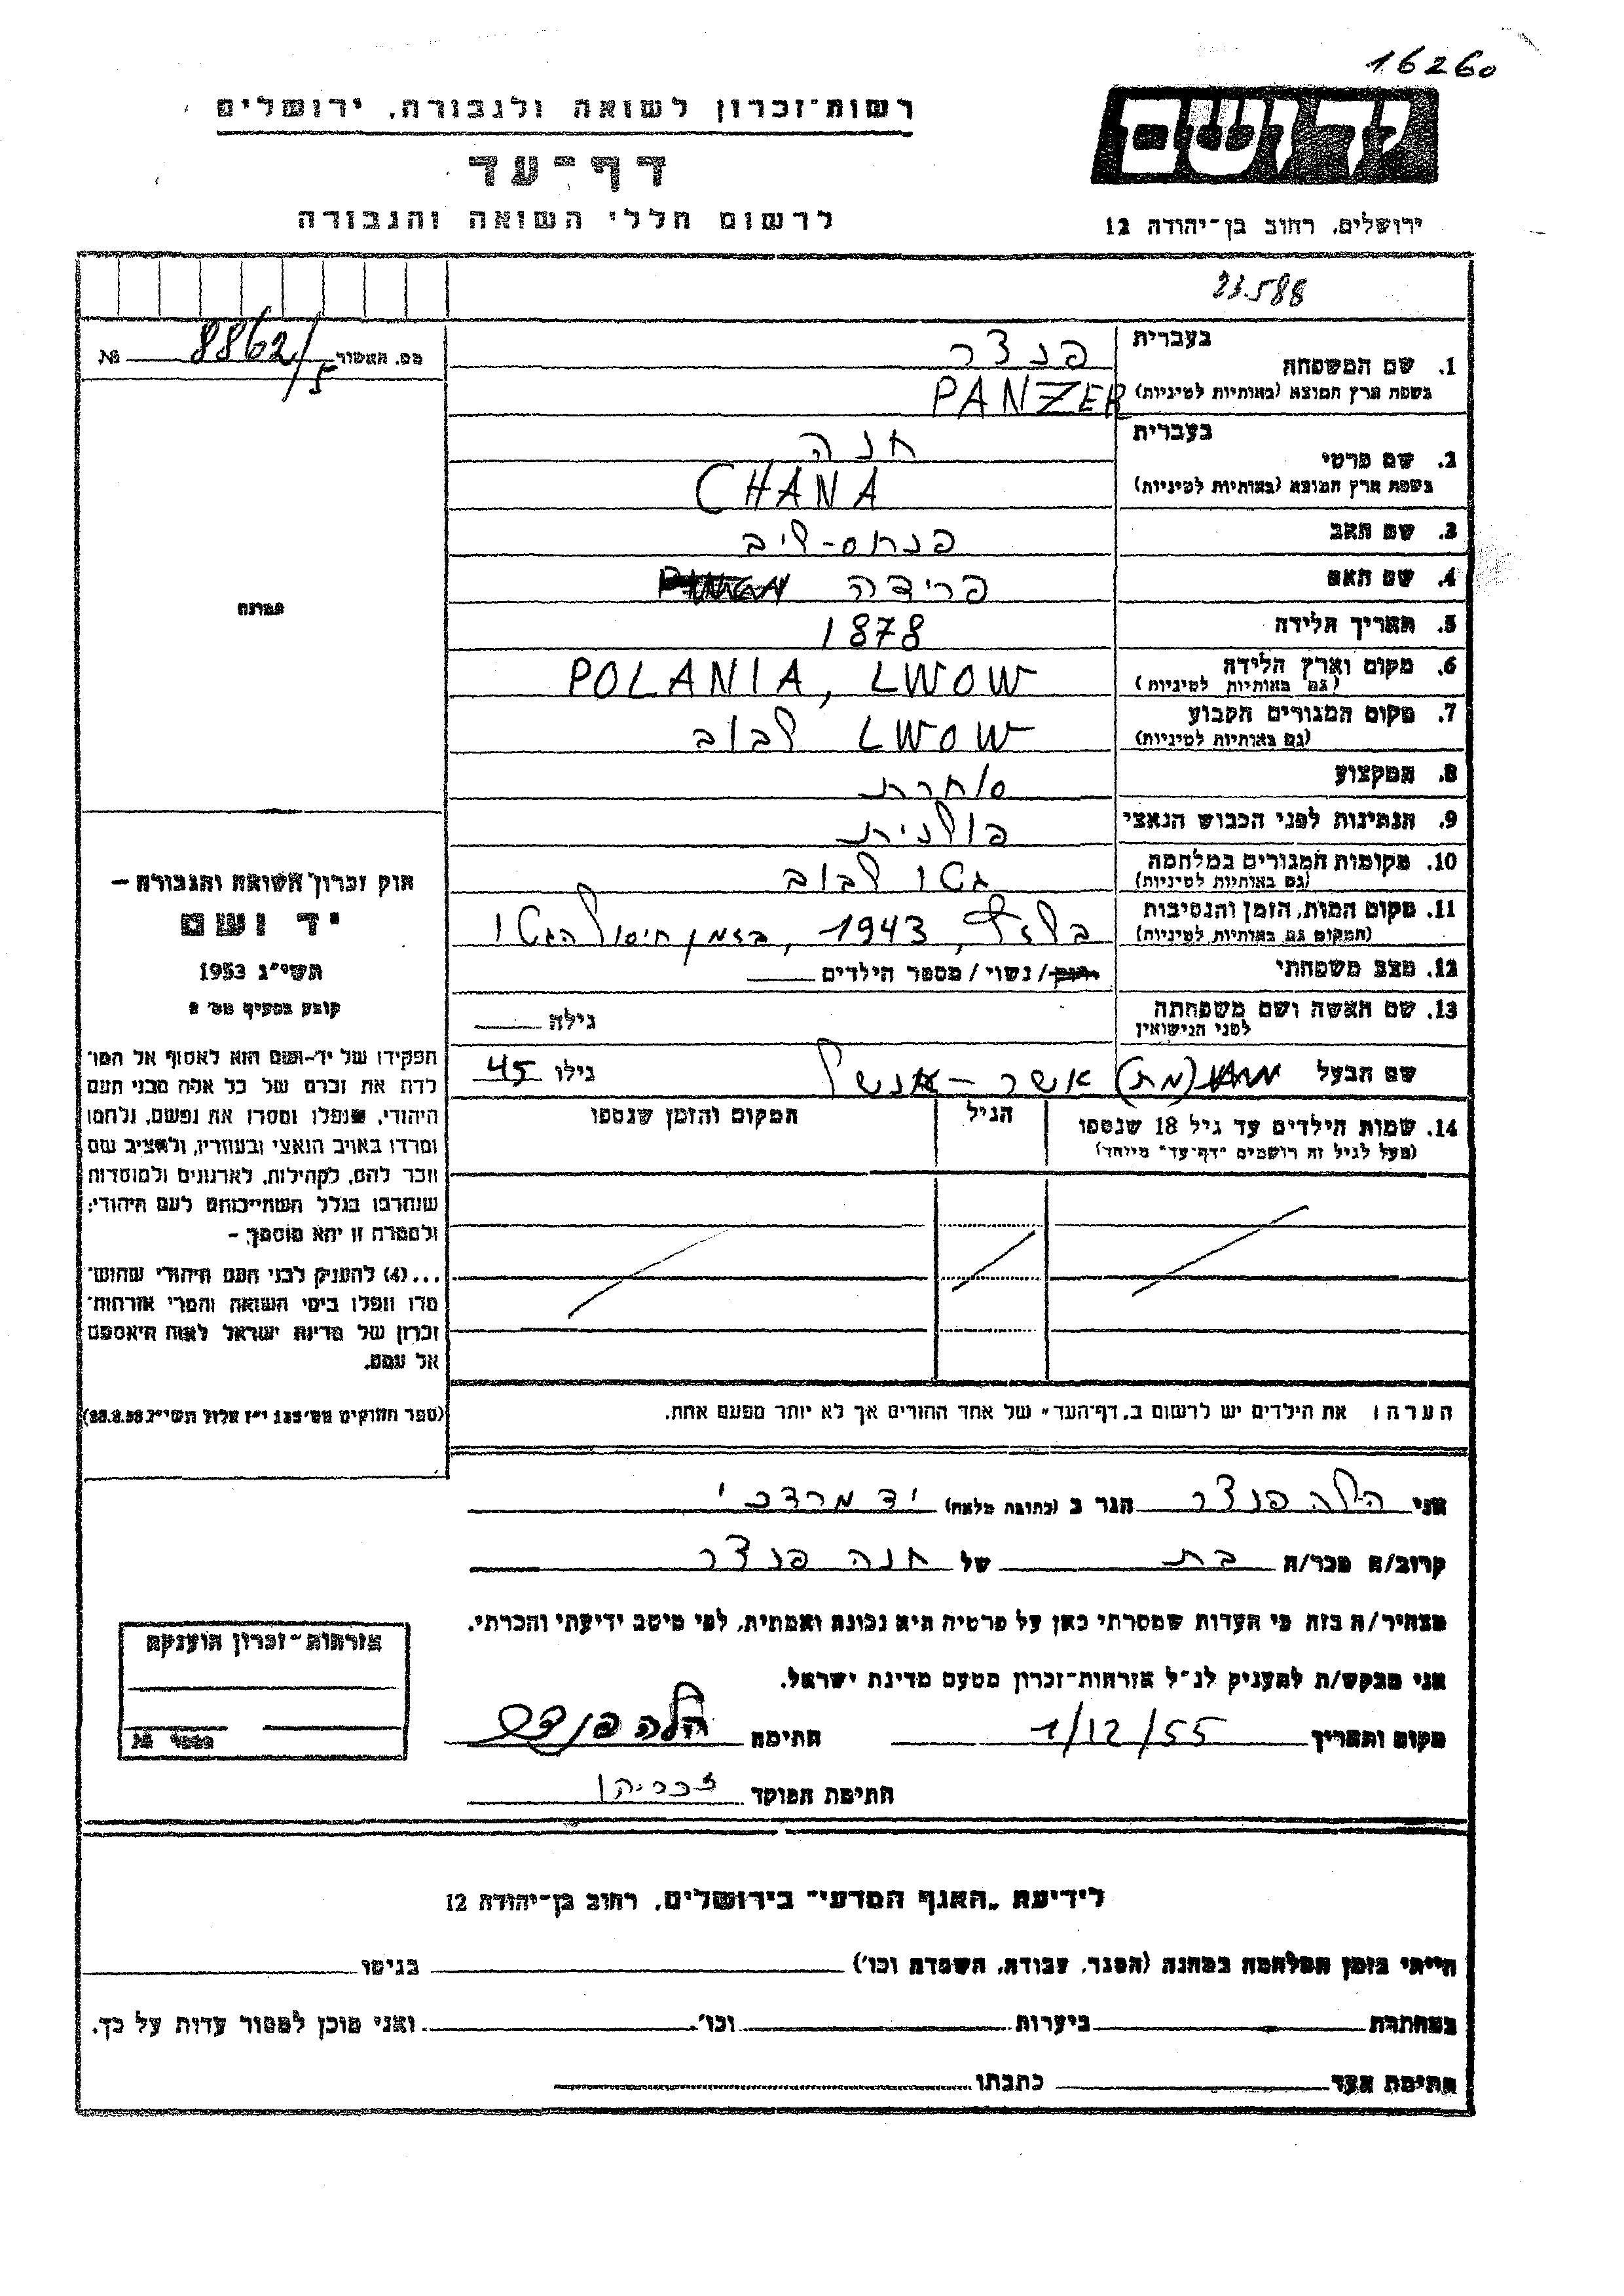 16260
רשות־זכרון לשואה ולגבורה, ירושלים
יד ושם
דף־עד
לרשום חללי השואה והגבורה
ירושלים, רחוב בן־יהודה 12
23588
מס. האסור 8862/5 №
1. שם המשפחה
בעברית פנצר
בשפת ארץ המוצא (באותיות לטיניות) PANZER
2. שם פרטי
בעברית חנה
בשפת ארץ המוצא (באותיות לטיניות) CHANA
3. שם האב פנחס-ליב
4. שם האם פרידה
5. תאריך הלידה 1878
6. מקום וארץ הלידה (גם באותיות לטיניות) POLANIA, LWOW
7. מקום המגורים הקבוע (גם באותיות לטיניות) LWOW לבוב
8. המקצוע סוחרת
9. הנתינות לפני הכבוש הנאצי פולנית
10. מקומות המגורים במלחמה (גם באותיות לטיניות) גטו לבוב
11. מקום המות, הזמן והנסיבות (המקום גם באותיות לטיניות) בלזץ, 1943, בזמן חיסול הגטו
12. מצב משפחתי רווק/ נשוי / מספר הילדים
13. שם האשה ושם משפחתה לפני הנישואין גילה
שם הבעל (מת) אשר - אנשל גילו 45
14. שמות הילדים עד גיל 18 שנספו הגיל המקום והזמן שנספו
(מעל לגיל זה רושמים "דף־עד" מיוחד)
הערה: את הילדים יש לרשום ב„דף־העד" של אחד ההורים אך לא יותר מפעם אחת.
תמונה
חוק זכרון השואה והגבורה –
יד ושם
תשי"ג 1953
קובע בסעיף מס' 2
תפקידו של יד-ושם הוא לאסוף אל המו־
לדת את זכרם של כל אלה מבני העם
היהודי, שנפלו ומסרו את נפשם, נלחמו
ומרדו באויב הנאצי ובעוזריו, ולהציב שם
וזכר להם, לקהילות, לארגונים ולמוסדות
שנחרבו בגלל השתייכותם לעם היהודי;
ולמטרה זו יהא מוסמך –
...(4) להעניק לבני העם היהודי שהוש־
מדו ונפלו בימי השואה והמרי אזרחות־
זכרון של מדינת ישראל לאות היאספם
אל עמם.
(ספר החוקים מס' 132 י"ז אלול תשי"ג 28.8.53)
אני הילה פנצר הגר ב (כתובת מלאה) יד מרדכי
קרוב/ה מכר/ה בת של חנה פנצר
מצהיר/ה בזה כי העדות שמסרתי כאן על פרטיה היא נכונה ואמתית, לפי מיטב ידיעתי והכרתי.
אני מבקש/ת להעניק לנ"ל אזרחות־זכרון מטעם מדינת ישראל.
מקום ותאריך 1/12/55 חתימה הלה פנצר
חתימת הפוקד זכריהו
אזרחות־זכרון הוענקה
מספר №
לידיעת „האגף המדעי" בירושלים, רחוב בן־יהודה 12
הייתי בזמן המלחמה במחנה (הסגר, עבודה, השמדה וכו') בגיטו
במחתרת ביערות וכו' ואני מוכן למסור עדות על כך.
חתימת העד כתבתו